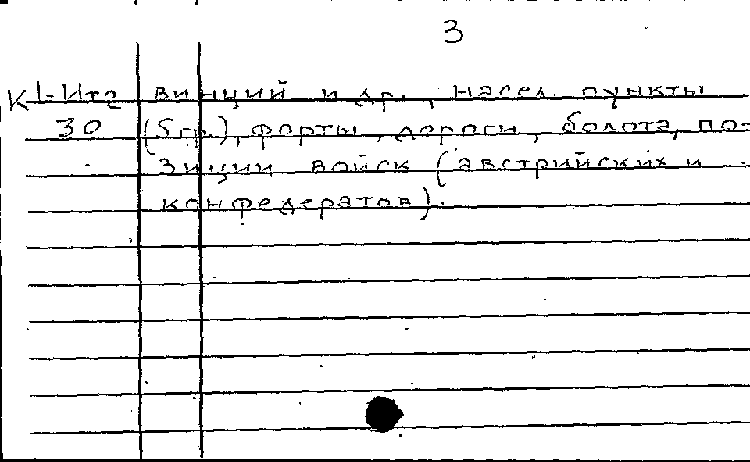 3
К 1-Ита винций и др., насел. пункты
30 (5 гр.), форты, дороги, болота, по-
зиции войск (австрийских и
конфедератов).